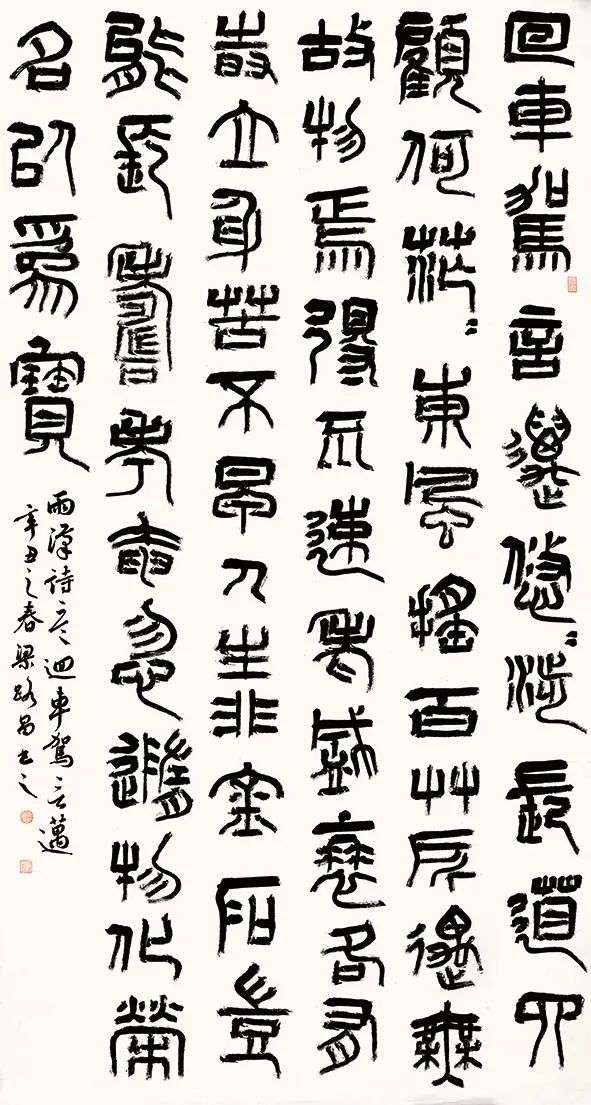 回車駕言邁悠〻涉長道四
顧何茫〻東風搖百草所遇無
故物焉得不速老盛衰各有
時立身苦不早人生非金石豈
能長壽考奄忽隨物化榮
名以為寶
兩漢詩迴車駕言邁
辛丑之春梁路書之